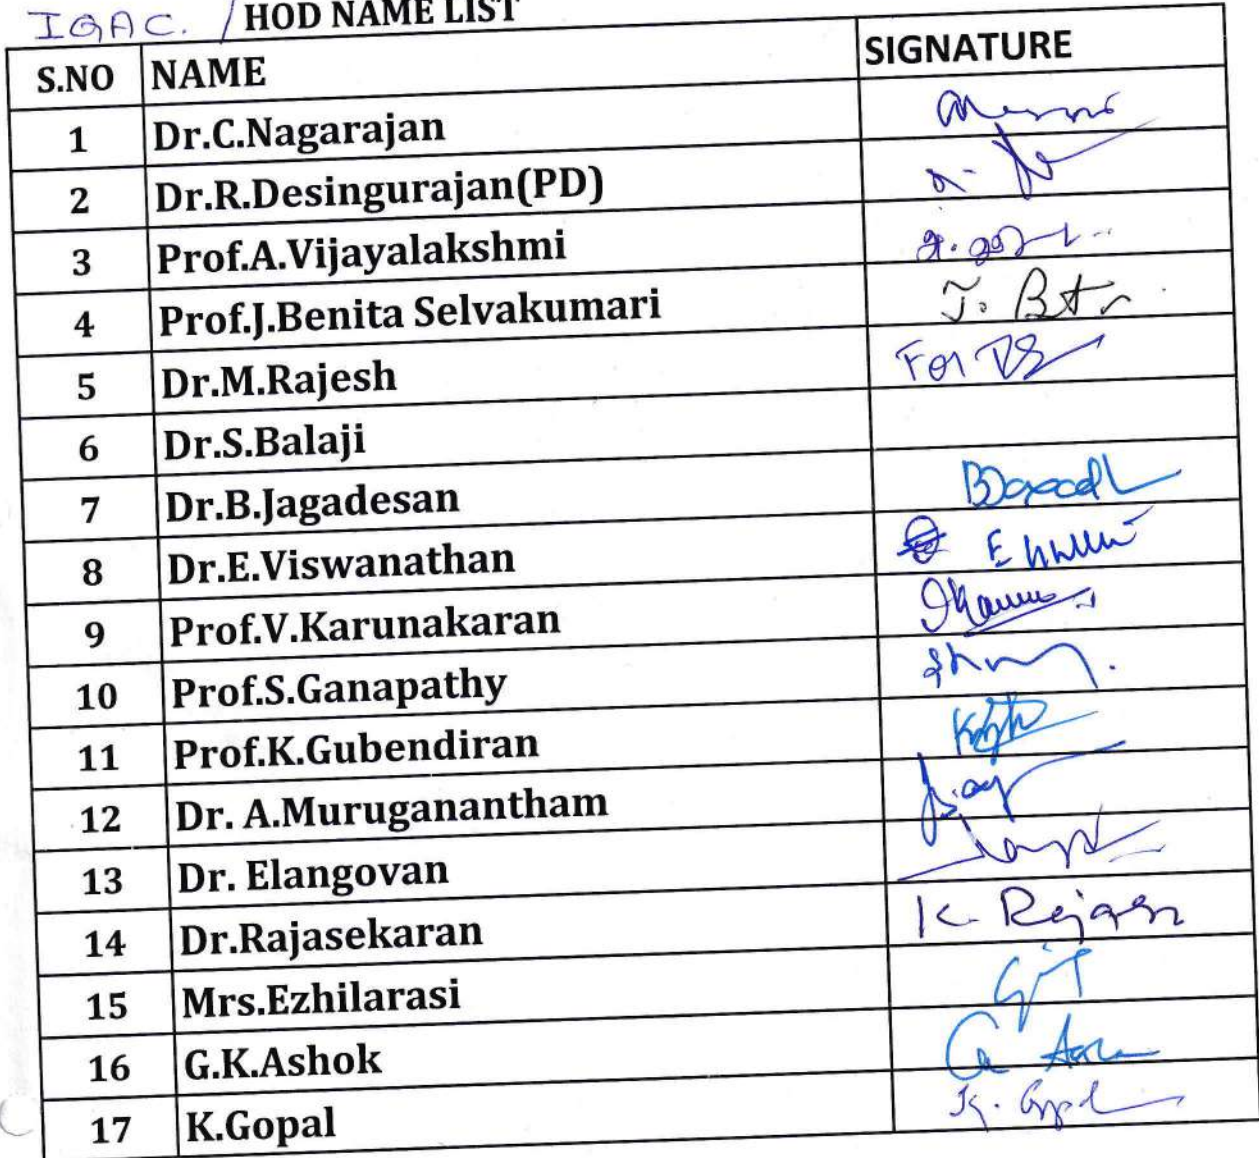 IQAC. / HOD NAME LIST
S.NO NAME SIGNATURE
1 Dr.C.Nagarajan
2 Dr.R.Desingurajan(PD)
3 Prof.A.Vijayalakshmi
4 Prof.J.Benita Selvakumari J.
5 Dr.M.Rajesh For
6 Dr.S.Balaji
7 Dr.B.Jagadesan
8 Dr.E.Viswanathan E
9 Prof.V.Karunakaran
10 Prof.S.Ganapathy
11 Prof.K.Gubendiran
12 Dr. A.Muruganantham
13 Dr. Elangovan
14 Dr.Rajasekaran K.
15 Mrs.Ezhilarasi
16 G.K.Ashok
17 K.Gopal K.